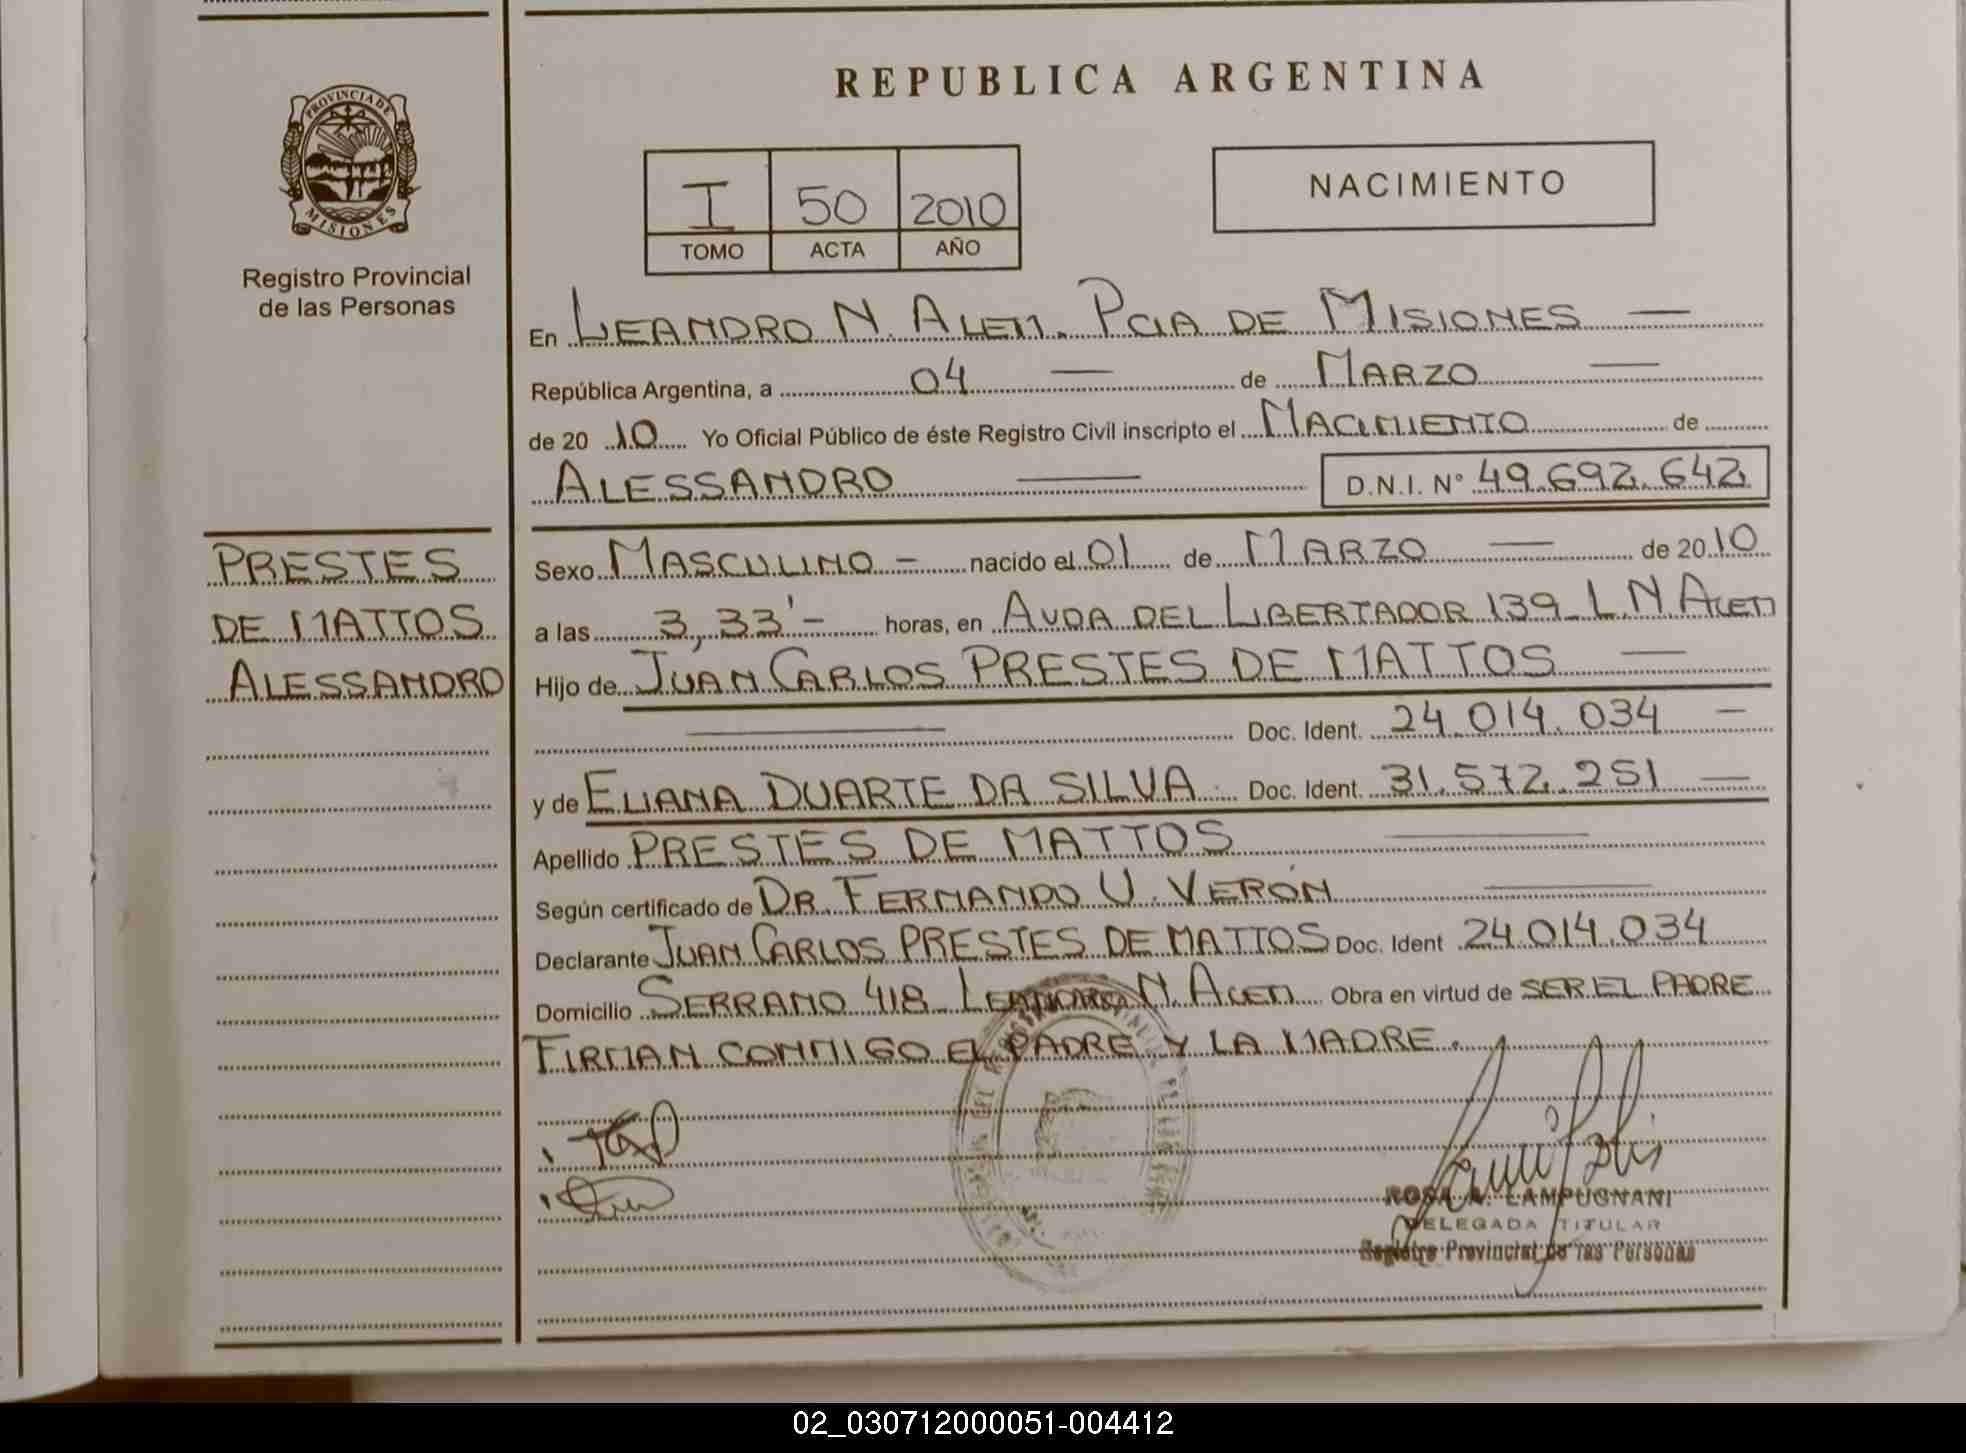 PROVINCIA DE
MISIONES
Registro Provincial
de las Personas
PRESTES
DE MATTOS
ALESSANDRO
REPUBLICA ARGENTINA
I 50 2010
TOMO ACTA AÑO
NACIMIENTO
En LEANDRO N. ALEM. PCIA DE MISIONES —
República Argentina, a 04 — de MARZO —
de 20 10 Yo Oficial Público de éste Registro Civil inscripto el NACIMIENTO de
ALESSANDRO — D.N.I. N° 49.692.642
Sexo MASCULINO - nacido el 01 de MARZO — de 2010
a las 3,33'- horas, en AVDA DEL LIBERTADOR 139 L N ALEM
Hijo de JUAN CARLOS PRESTES DE MATTOS —
— Doc. Ident. 24.014.034 —
y de ELIANA DUARTE DA SILVA Doc. Ident. 31.572.251 —
Apellido PRESTES DE MATTOS —
Según certificado de DR. FERNANDO U. VERÓN —
Declarante JUAN CARLOS PRESTES DE MATTOS Doc. Ident 24.014.034
Domicilio SERRANO 418 LEANDRO N. ALEM Obra en virtud de SER EL PADRE
FIRMAN CONMIGO EL PADRE Y LA MADRE.
ROSA A. LAMPUGNANI
DELEGADA TITULAR
Registro Provincial de las Personas
02_030712000051-004412